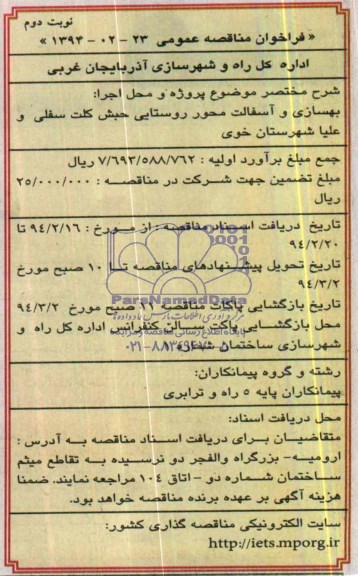 نوبت دوم
« فراخوان مناقصه عمومی ۲۳ -۰۲- ۱۳۹۴ »
اداره کل راه و شهرسازی آذربایجان غربی
شرح مختصر موضوع پروژه و محل اجرا:
بهسازی و آسفالت محور روستایی حبش کلت سفلی و
علیا شهرستان خوی
جمع مبلغ برآورد اولیه : ۷/۶۹۳/۵۸۸/۷۶۲ ریال
مبلغ تضمین جهت شرکت در مناقصه : ۲۵/۰۰۰/۰۰۰
ریال
تاریخ دریافت اسناد مناقصه: از مورخ : ۹۴/۲/۱۶ تا
۹۴/۲/۲۰
تاریخ تحویل پیشنهادهای مناقصه تا ۱۰ صبح مورخ
۹۴/۳/۲
ParsNamadData
تاریخ بازگشایی پاکات مناقصه ۱۱ صبح مورخ ۹۴/۳/۲
محل بازگشایی پاکت سالن کنفرانس اداره کل راه و
پایگاه اطلاع رسانی مناقصه و مزایده
شهرسازی ساختمان شماره ۱
۰۲۱-۸۸۳۴۹۶۷۰-۵
رشته و گروه پیمانکاران:
پیمانکاران پایه ۵ راه و ترابری
محل دریافت اسناد:
متقاضیان برای دریافت اسناد مناقصه به آدرس :
ارومیه- بزرگراه والفجر دو نرسیده به تقاطع میثم
ساختمان شماره دو - اتاق ۱۰۴ مراجعه نمایند. ضمنا
هزینه آگهی بر عهده برنده مناقصه خواهد بود.
سایت الکترونیکی مناقصه گذاری کشور:
http://iets.mporg.ir